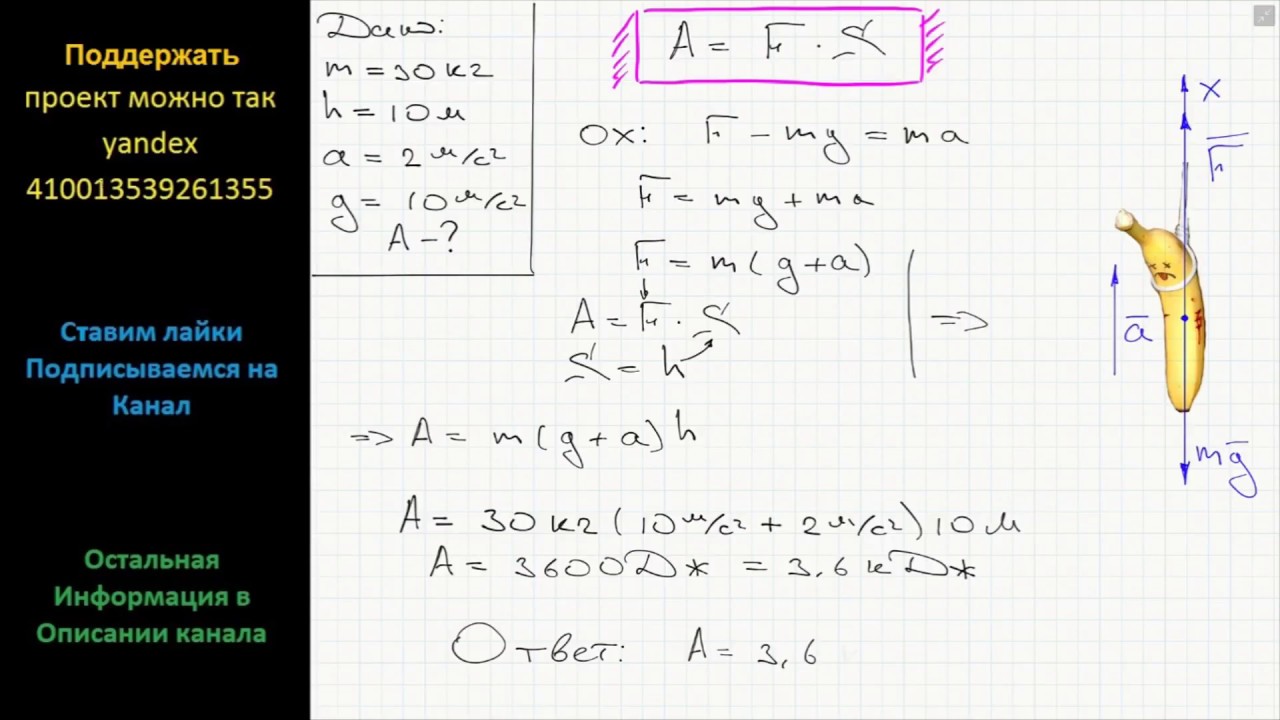 Поддержать
проект можно так
yandex
410013539261355
Ставим лайки
Подписываемся на
Канал
Остальная
Информация в
Описании канала
Дано:
m = 30 кг
h = 10 м
a = 2 м/с²
g = 10 м/с²
A - ?
A = F · S
OX: F - mg = ma
F = mg + ma
F = m(g + a)
A = F · S
S = h
=>
=> A = m(g + a)h
A = 30 кг (10 м/с² + 2 м/с²) 10 м
A = 3600 Дж = 3,6 кДж
Ответ: A = 3,6
X
F
a
mg